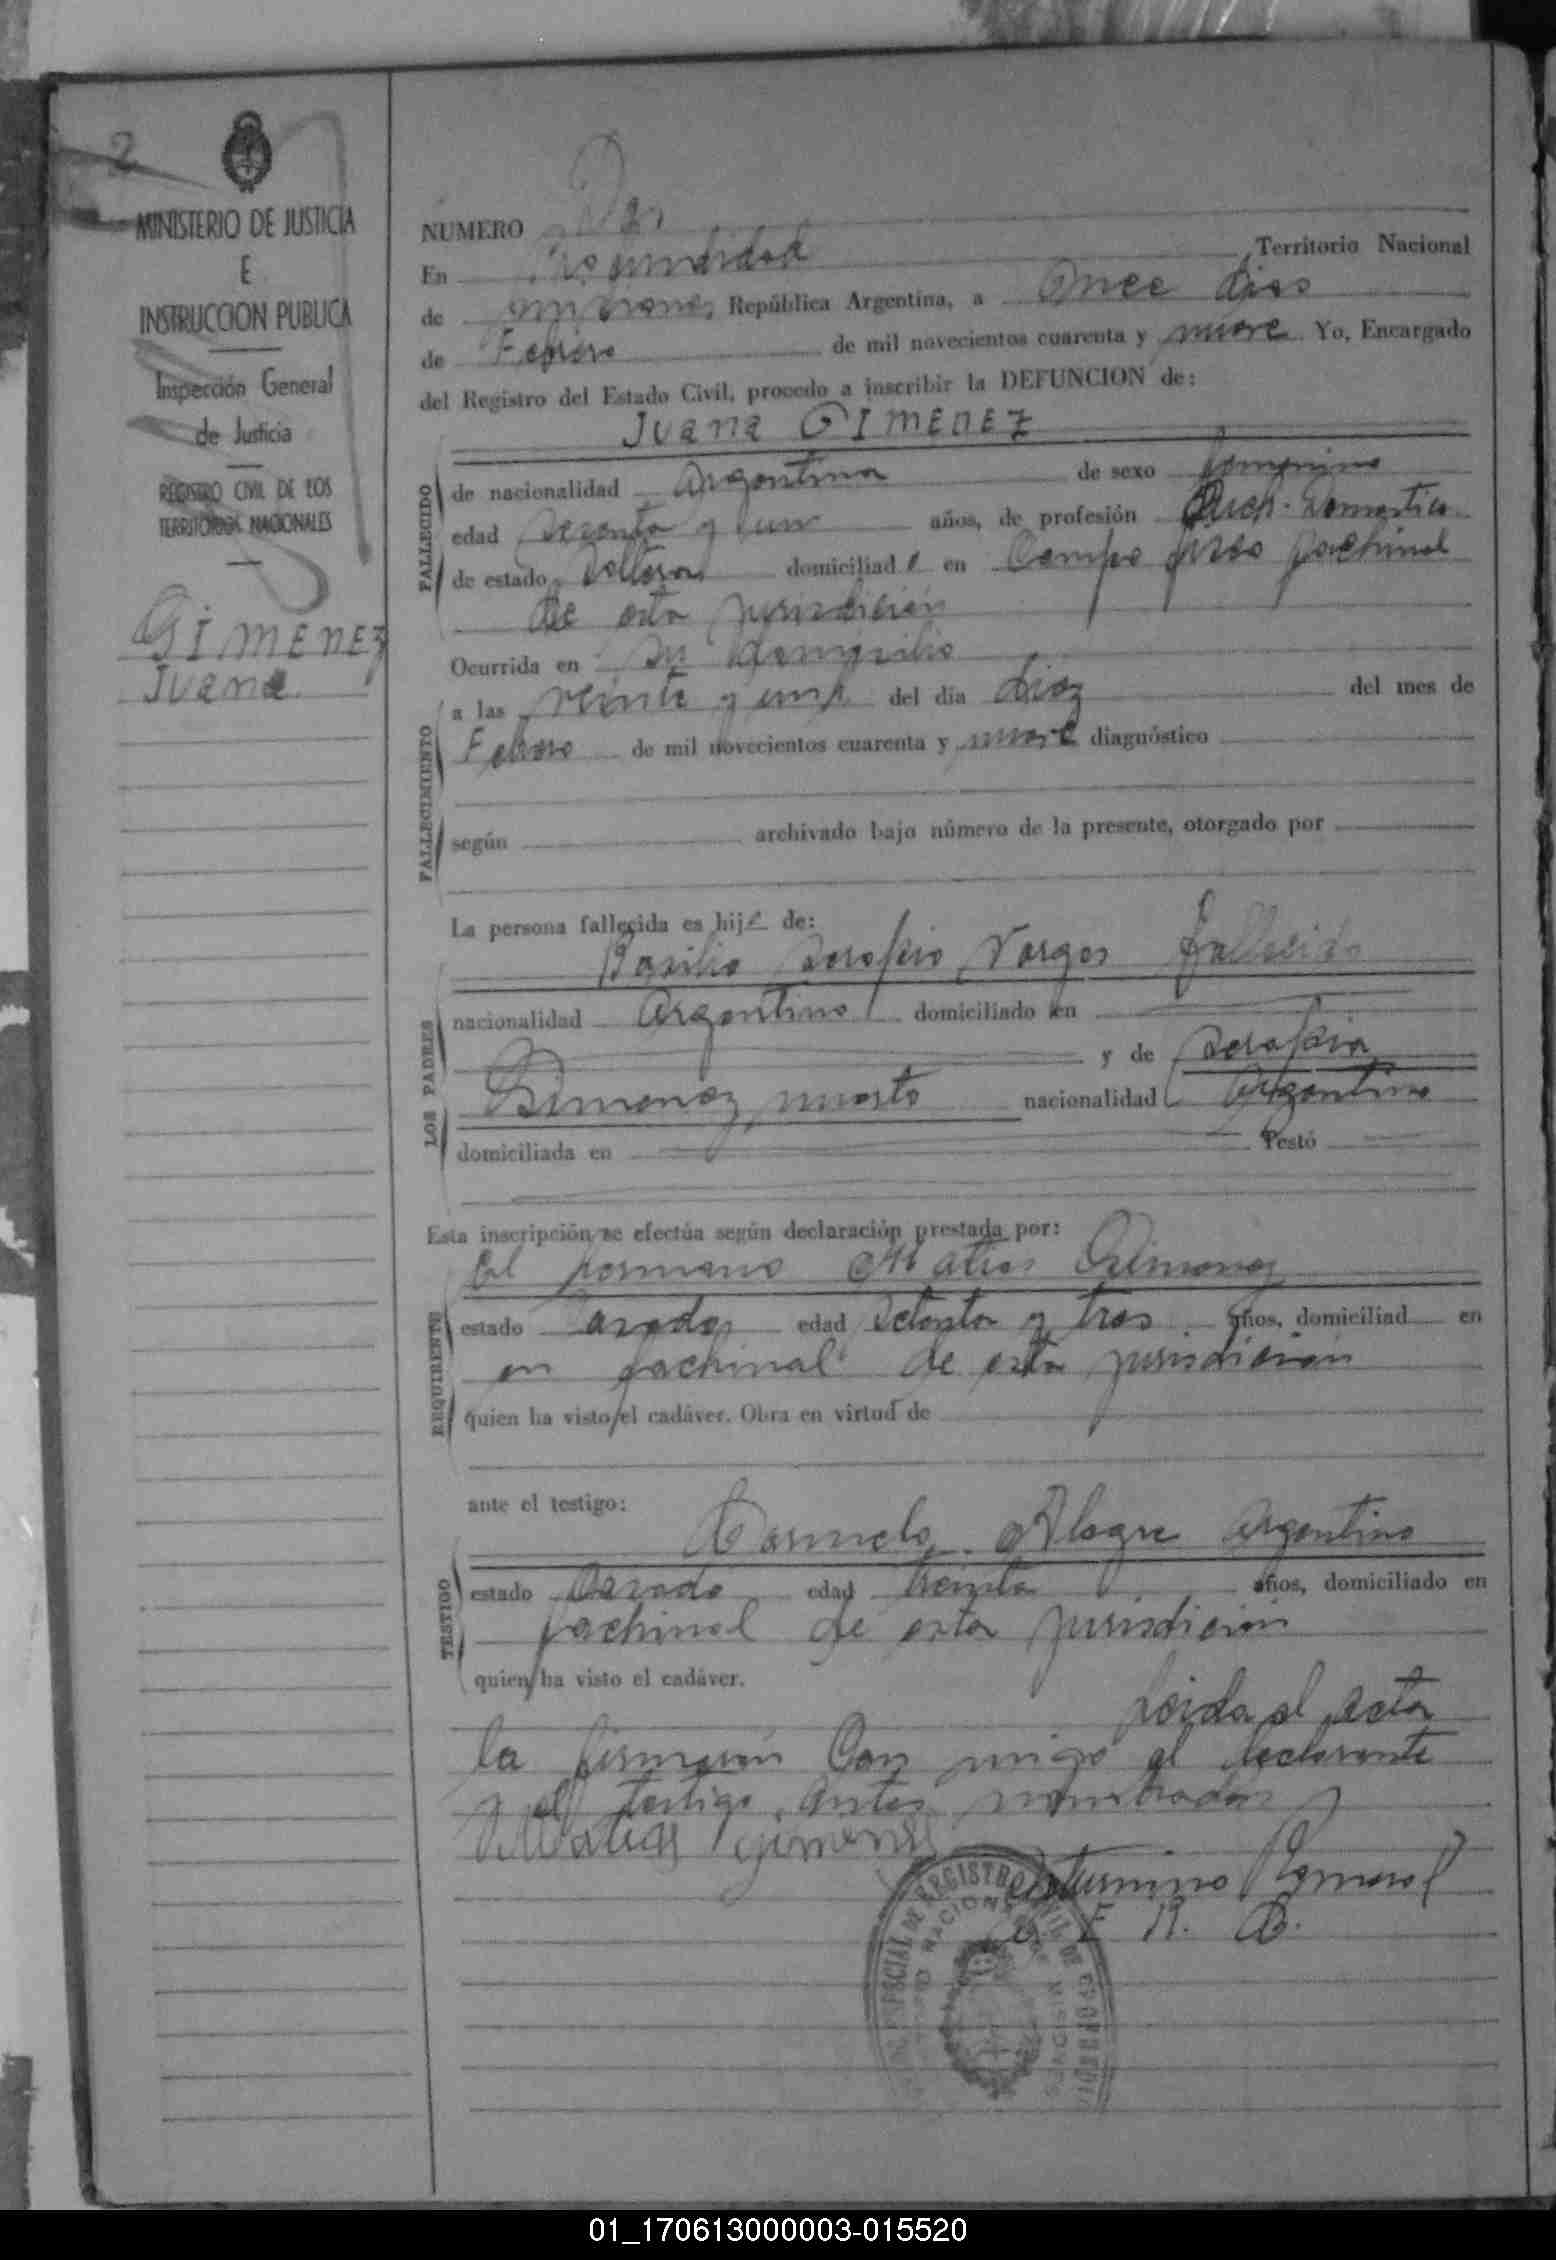 2
MINISTERIO DE JUSTICIA
E
INSTRUCCION PUBLICA
Inspección General
de Justicia
REGISTRO CIVIL DE LOS
TERRITORIOS NACIONALES
GIMENEZ
Juana
NUMERO Dos
En Profundidad Territorio Nacional
de misiones República Argentina, a Once dias
de Febrero de mil novecientos cuarenta y nueve Yo, Encargado
del Registro del Estado Civil, procedo a inscribir la DEFUNCION de:
Juana GIMENEZ
FALLECIDO
de nacionalidad Argentina de sexo femenino
edad y un años, de profesión Domestica
de estado Soltera domiciliada en Campo fachinal
de esta jurisdicion
FALLECIMIENTO
Ocurrida en su domicilio
a las veinte y una del día diez del mes de
Febrero de mil novecientos cuarenta y nueve diagnóstico
según archivado bajo número de la presente, otorgado por
LOS PADRES
La persona fallecida es hija de:
Basilio Serapio Vargas fallecido
nacionalidad Argentino domiciliado en
y de Serapia
Gimenez muerta nacionalidad Argentina
domiciliada en Testó
REQUIRENTE
Esta inscripción se efectúa según declaración prestada por:
el hermano Matias Gimenez
estado casado edad setenta y tres años, domiciliad en
en fachinal de esta jurisdicion
quien ha visto el cadáver. Obra en virtud de
TESTIGO
ante el testigo:
Carmelo Alegre argentino
estado Casado edad treinta años, domiciliado en
fachinal de esta jurisdicion
quien ha visto el cadáver.
Leida el acta
la firmaron Con migo el declarante
y el testigo antes nombrados
Matias gimenez
Saturnino Romero
E. R. C.
01_170613000003-015520